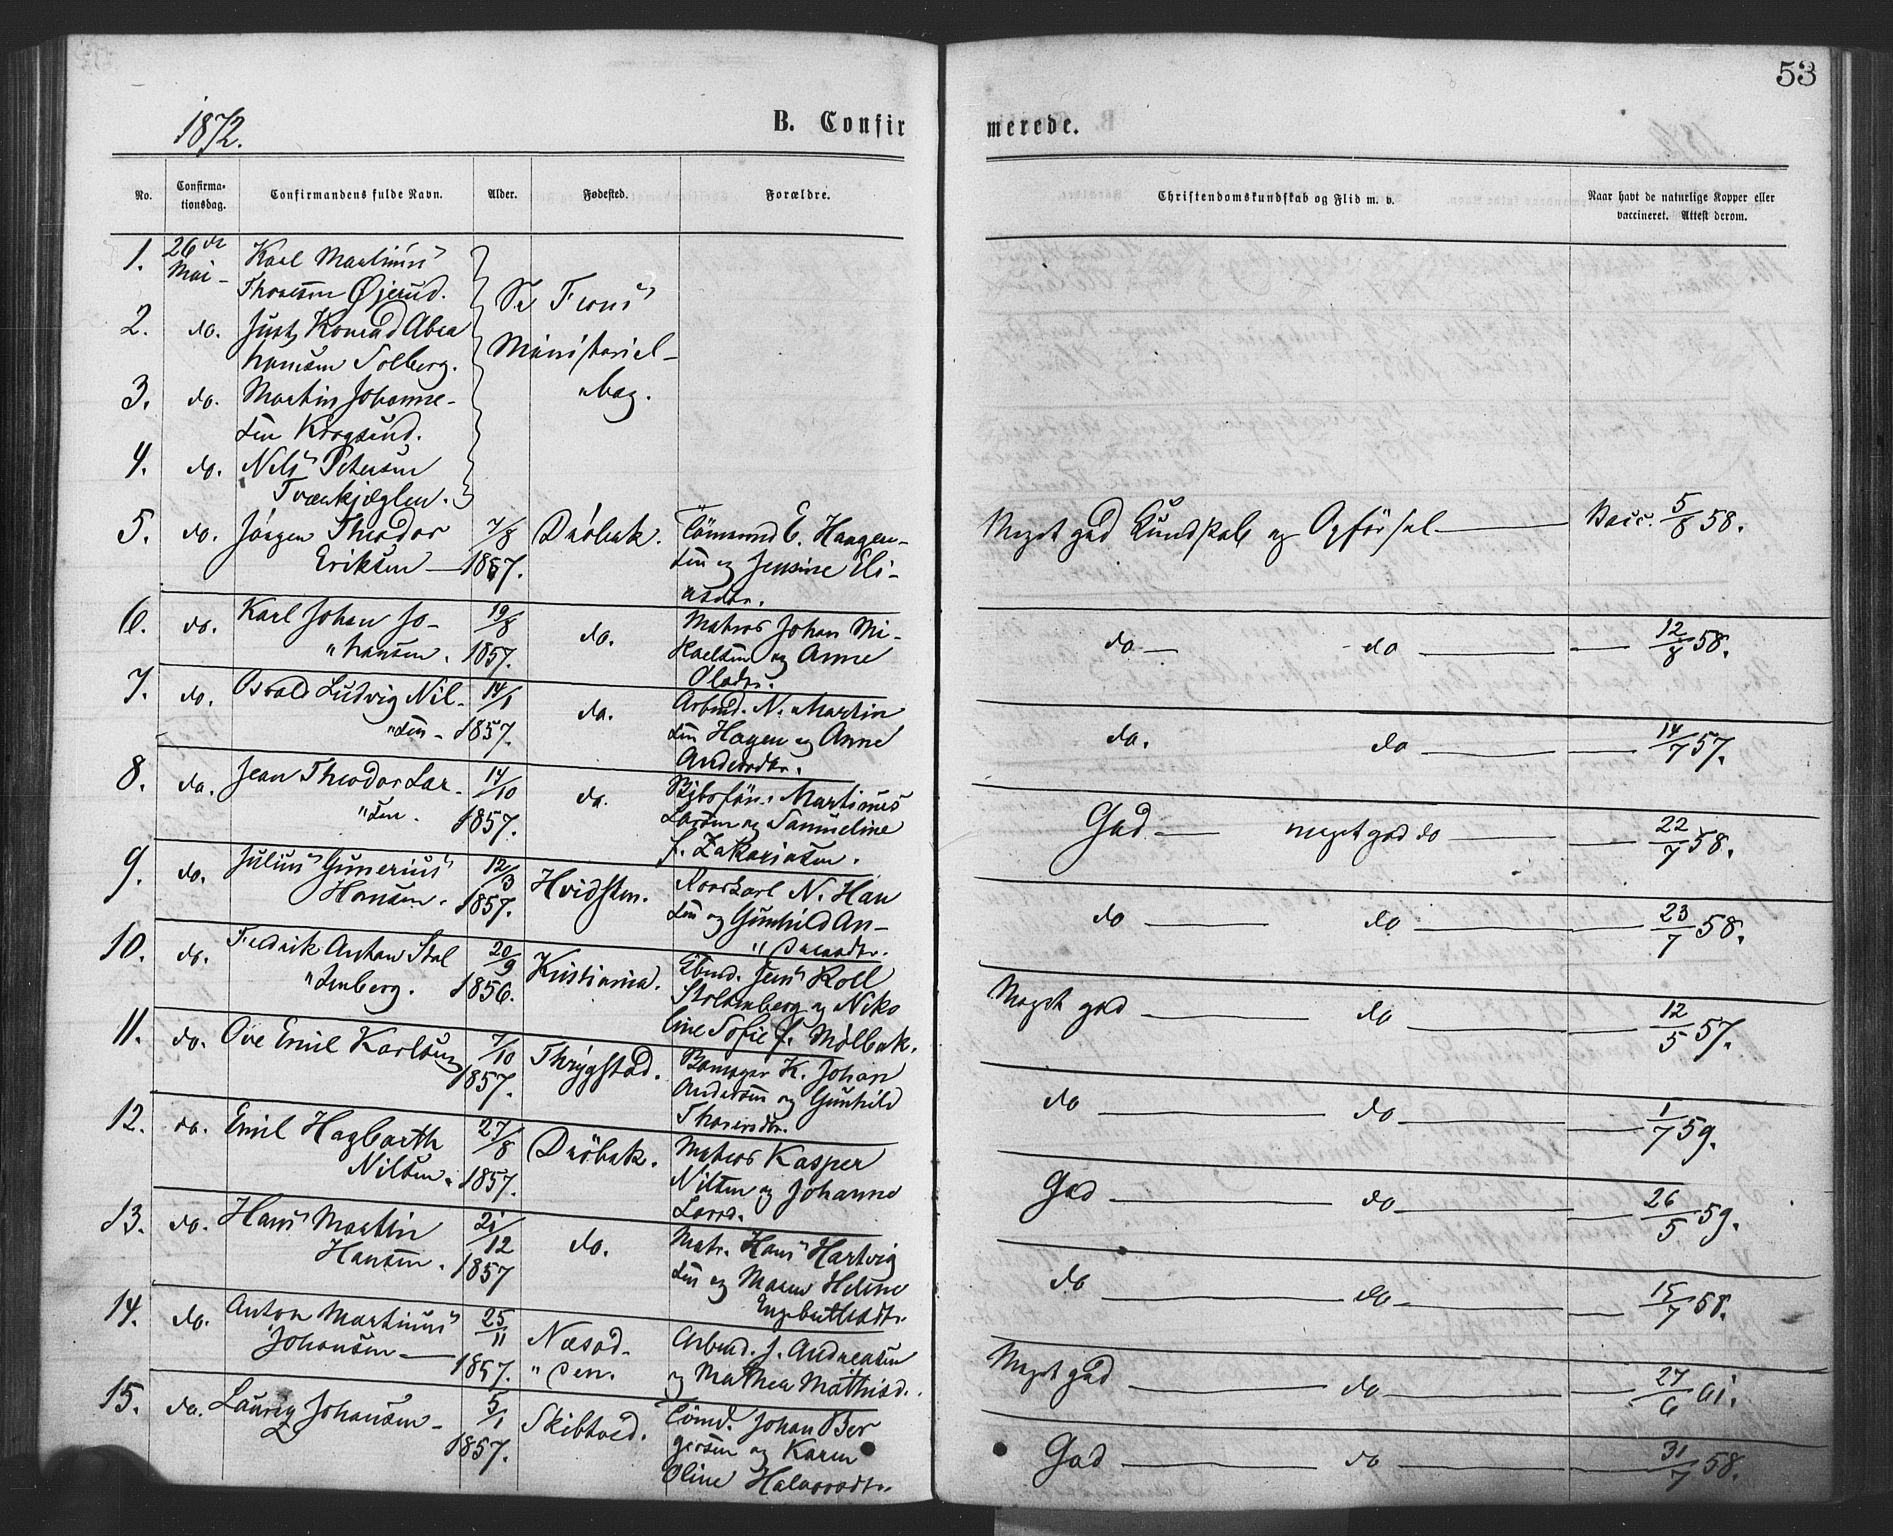 53
1872.
B. Confirmerede.
No. Confirmationsdag. Confirmandens fulde Navn. Alder. Fødested. Forældre. Christendomskundskab og Flid m. v. Naar havt de naturlige Kopper eller vaccineret. Attest derom.
1. 26de Mai - Karl Martinius
Thoresen Øjerud.
Se Frons
Ministerial-
bog.
2. do. Justz Konrad Abra
hamsen Solberg.
3. do. Martin Johanne-
sen Krogsund.
4. do. Nils Petersen
Tværkjæglen.
5. do. Jørgen Theodor
Eriksen — 7/8 1857. Drøbak. Tømmermd E. Haagen-
sen og Jensine Eli-
asdtr. Meget god Kundskab og Opførsel — Vacc. 5/8 58.
6. do. Karl Johan Jo-
"hansen. 19/8 1857. do. Matros Johan Mi-
kaelsen og Anne
Olsdtr. do — do — 12/8 58.
7. do. Osvald Ludvig Nil-
"sen - 14/1 1857. do. Arbmd. N. Martin
sen Hagen og Anne
Andersdtr. do. do — 14/7 57.
8. do. Jean Theodor Lar-
"sen. 14/10 1857. do. Martinus
Larsen og Samueline
f. Zakariasen. God — meget god do — 22/7 58.
9. do. Julius Gunerius
Hansen. 12/3 1857. Hvidsten. Roerkarl N. Han
sen og Gunhild An-
"dersdtr. do — do — 23/7 58.
10. do. Fredrik Anton Stol
"tenberg. 20/9 1856. Kristiania. Jens Koll
Stoltenberg og Niko
line Sofie f. Mølbak. Meget god — do — 12/5 57.
11. do. Ove Emil Karlsen 7/10 1857. Thrygstad. K. Johan
Andersen og Gunhild
Thoresdtr. do — do — 1/7 59.
12. do. Emil Hagbarth
Nilsen. 27/8 1857. Drøbak. Matros Kasper
Nilsen og Johanne
Larsd. God — do — 26/5 59.
13. do. Hans Martin
Hansen. 21/12 1857 do. Matr. Hans Hartvig
sen og Maren Helene
Engebretsdtr. do — do — 15/7 58.
14. do. Anton Martinius
Johansen — 25/11 1857. Næsod-
"den. Arbmd. J. Andreasen
og Mathea Mathisd. Meget god — do — 27/6 61.
15. do. Lauritz Johansen - 5/1 1857. Skibtved. Tømd. Johan Ber
gersen og Karen
Oline Halvorsdtr. God — do — 31/7 58.